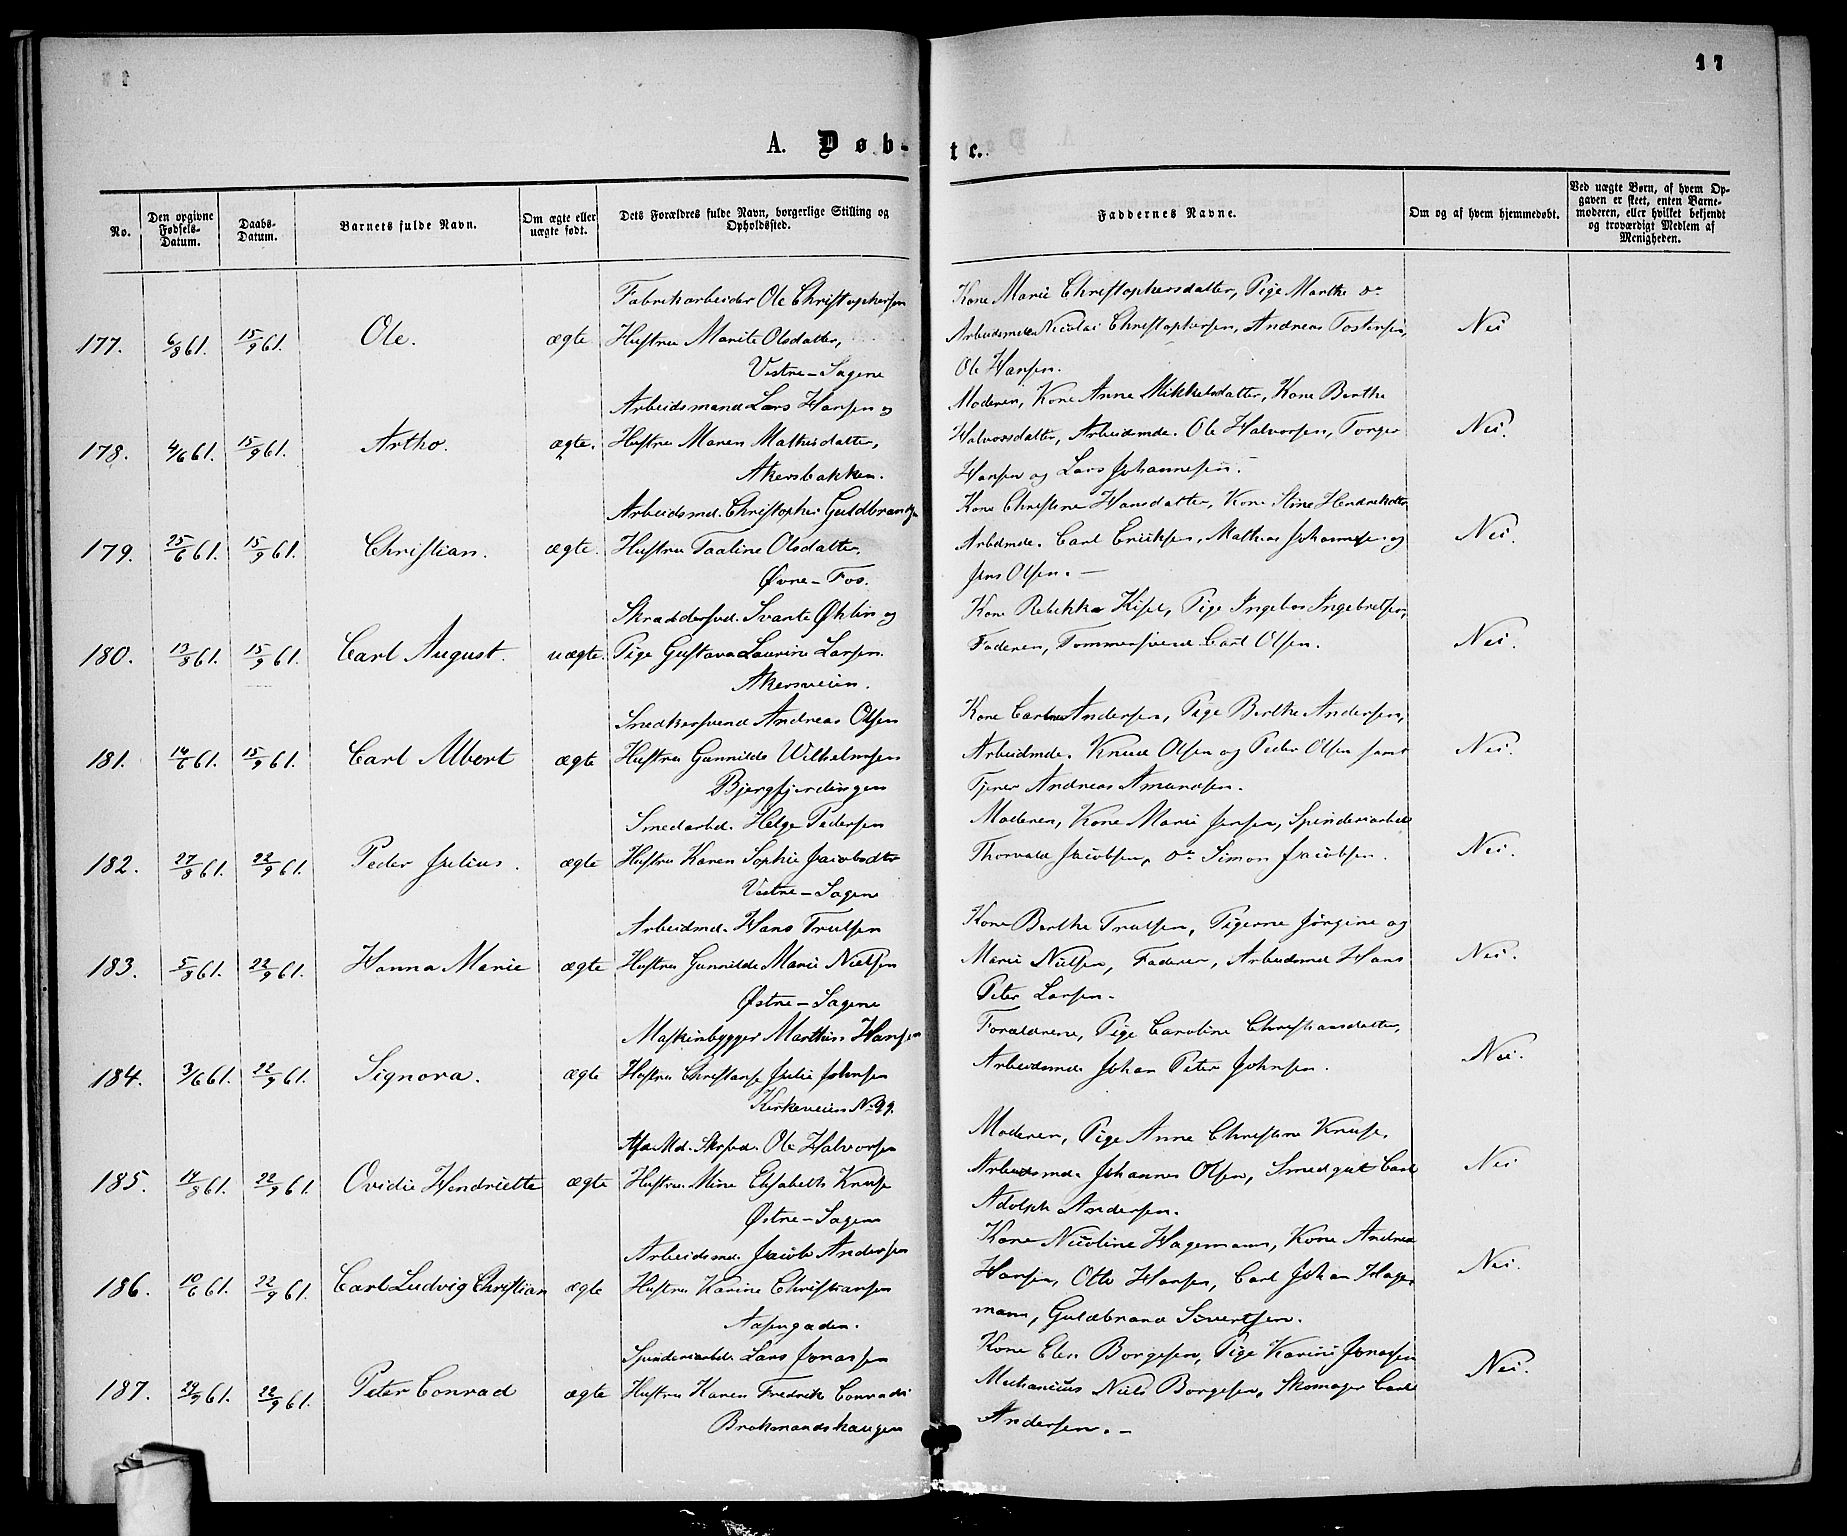 17
A. Døb-
te.
No.
Den opgivne Fødsels-Datum.
Daabs-Datum.
Barnets fulde Navn.
Om ægte eller uægte født.
Dets Forældres fulde Navn, borgerlige Stilling og Opholdssted.
Faddernes Navne.
Om og af hvem hjemmedøbt.
Ved uægte Børn, af hvem Opgaven er skeet, enten Barnemoderen, eller hvilket bekjendt og troværdigt Medlem af Menigheden.
Fabrikarbeider Ole Christophersen
177. 6/8 61. 15/9 61. Ole. ægte. Hustru Marite Olsdatter,
Vestre-Sagene
Kone Marie Christophersdatter, Pige Marthe do
Arbeidsmde Nicolai Christophersen, Andreas Tostensen,
Ole Hansen.
Nei
Arbeidsmand Lars Hansen og
178. 4/6 61. 15/9 61. Artho. ægte. Hustru Maren Mathisdatter,
Akersbakken.
Moderen, Kone Anne Mikkelsdatter, Kone Berthe
Halvorsdatter, Arbeidmde. Ole Halvorsen, Torger
Hansen og Lars Johannesen.
Nei.
Arbeidsmd. Christopher Guldbrandsen
179. 25/6 61. 15/9 61. Christian. ægte. Hustru Taaline Olsdatter
Øvre-Fos.
Kone Christine Hansdatter, Kone Stine Hendriksdtter
Arbdmde. Carl Eriksen, Mathias Johannesen og
Jens Olsen. —
Nei.
Skræddersvd. Svante Øhlin og
180. 13/8 61. 15/9 61. Carl August. uægte. Pige Gustava Laurine Larsen.
Akersveien.
Kone Rebekka Kisel, Pige Ingebor Ingebretsen,
Faderen, Tømmersvend Carl Olsen.
Nei.
Snedkersvend Andreas Olsen
181. 14/6 61. 15/9 61. Carl Albert ægte Hustru Gunnilde Wilhelmsen
Bjergfjerdingen
Kone Andersen, Pige Berthe Andersen,
Arbeidmde. Knud Olsen og Peder Olsen samt
Tjener Andreas Amundsen.
Nei.
Smedarbd. Helge Pedersen
182. 27/8 61. 22/9 61. Peder Julius. ægte Hustru Karen Sophie Jacobsdtr
Vestre-Sagene
Moderen, Kone Marie Jensen, Spinderiarbde
Thorvald Jacobsen, do Simon Jacobsen.
Nei.
Arbeidmd. Hans Trulsen
183. 5/8 61. 22/9 61. Hanna Marie ægte Hustru Gunnilde Marie Nielsen
Østre-Sagene
Kone Berthe Trulsen, Pigerne Jørgine og
Marie Nielsen, Faderen, Arbeidsmd Hans
Peter Larsen.
Nei.
Maskinbygger Marthin Hansen
184. 3/6 61. 22/9 61. Signora. ægte Hustru Christianse Julie Johnsen
Kirkeveien No 99.
Forældrene, Pige Caroline Christiansdatter,
Arbeidsmd Johan Peter Johnsen.
Nei.
Ole Halvorsen
185. 17/8 61. 22/9 61. Ovidie Hendriette ægte Hustru Mine Elisabeth Kruse
Østre-Sagene
Moderen, Pige Anne Christine Kruse,
Arbeidsmd. Johannes Olsen, Smedgut Carl
Adolph Andersen.
Nei
Arbeidsmd. Jacob Andersen
186. 10/6 61. 22/9 61. Carl Ludvig Christian ægte Hustru Karine Christiansen
Aasengaden.
Kone Nicoline Hagemann, Kone Andrea
Hansen, Otto Hansen, Carl Johan Hage-
mann, Guldbrand Sivertsen.
Nei.
Spinderiarbd. Lars Jonassen
187. 22/9 61. Peter Conrad ægte Hustru Karen Fredrik Conradi
Brokmandshaugen
Kone Elen Borgesen, Pige Karine Jonassen
Mechanicus Niels Borgesen, Skomager Carl
Andersen. —
Nei.